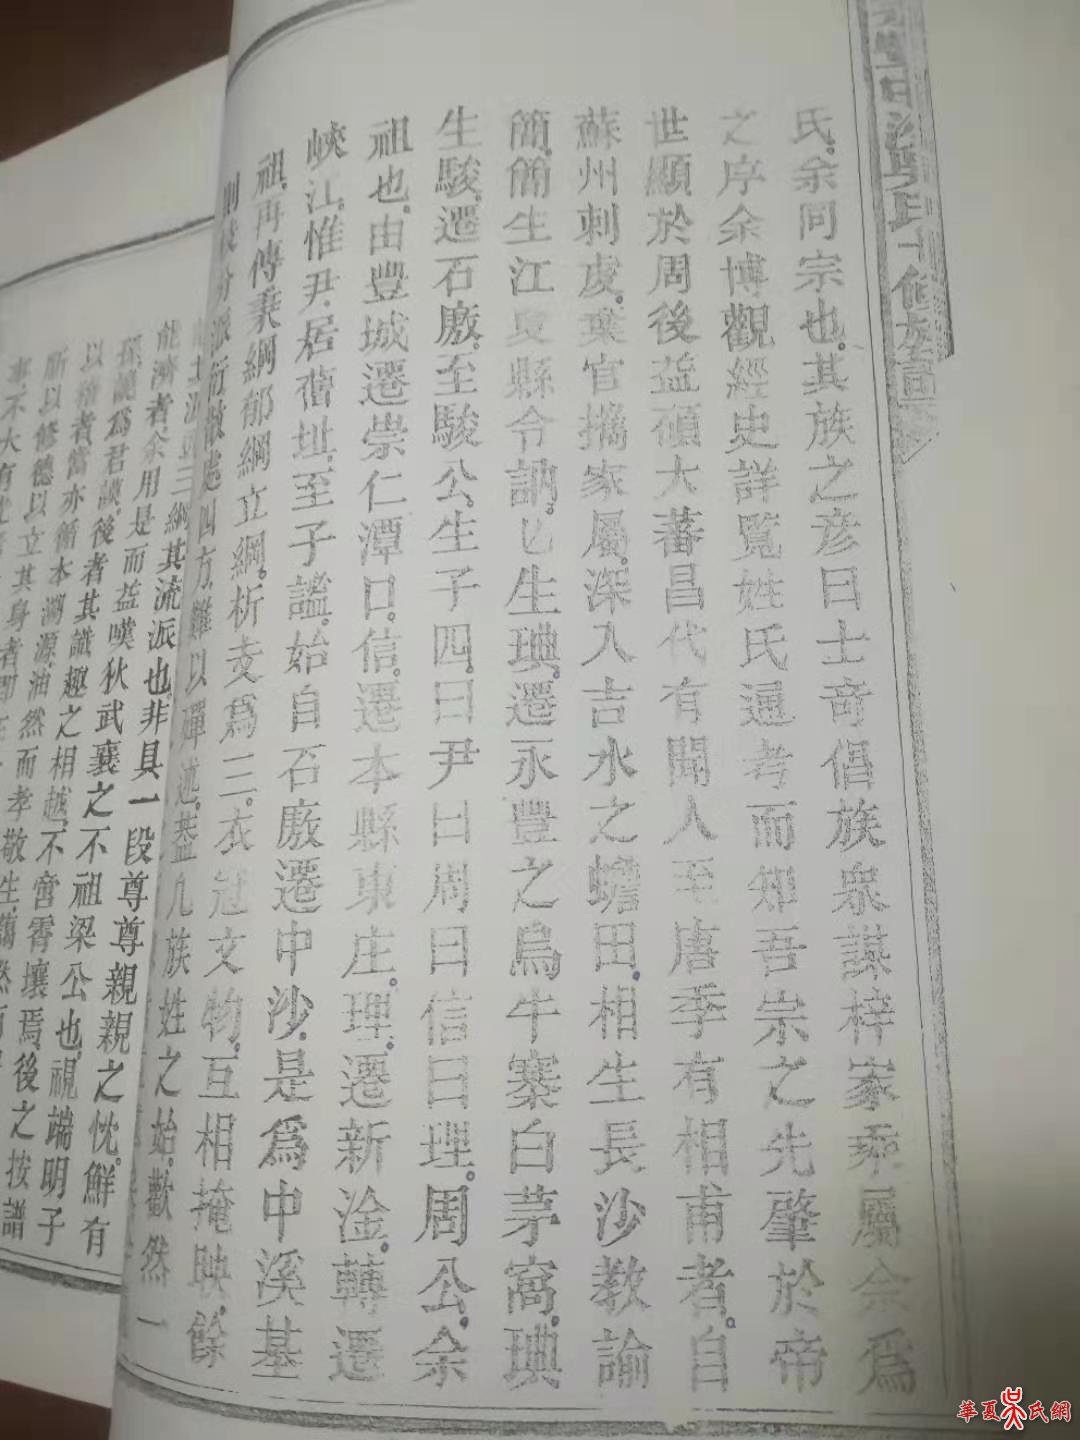 氏余同宗也其族之彦曰士奇倡族衆謀梓家乘屬余爲
之序余博觀經史詳覧姓氏通考而知吾宗之先肇於帝
世顯於周後益碩大蕃昌代有聞人至唐季有相甫者自
蘇州刺虔葉官攜家屬深入吉水之蟾田相生長沙教諭
簡簡生江夏縣令訥生琠遷永豐之烏牛寨白茅窩琠
生駿遷石廒至駿公生子四曰尹曰周曰信曰理周公余
祖也由豐城遷崇仁潭口信遷本縣東庄理遷新淦轉遷
峽江惟尹居舊址至子謐始自石廒遷中沙是爲中溪基
祖再傳秉綱郁綱立綱析爲三衣冠文物互相掩映餘
則分派衍散處四方難以殫述蓋凡族姓之始歡然一
三綱其流派也非具一段尊尊親親之忱鮮有
能濟者余用是而益嘆狄武襄之不祖梁公也視端明子
孫認爲君謨後者其識趣之相越不啻霄壤焉後之按譜
以稽者當亦循本溯源油然而孝敬生藹然
所以修德以立其身者
事不大有
華夏吴氏網